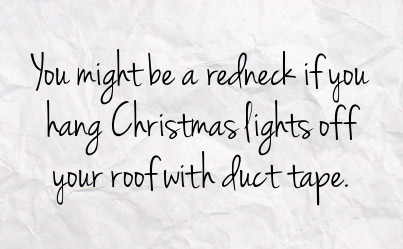 You might be a redneck if you
hang Christmas lights off
your roof with duct tape.